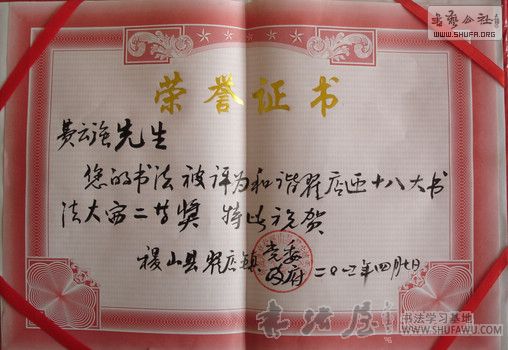 书艺公社
WWW.SHUFA.ORG
荣誉证书
黄云强先生
您的书法被评为和谐翟店迎十八大书
法大赛二等奖 特此祝贺
稷山县翟店镇党委
政府
二〇一二年四月七日
书法屋
书法学习基地
WWW.SHUFAWU.COM